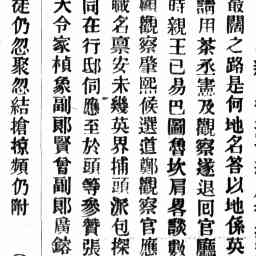 最闊之路是何地名答以地係英
需用茶丞憲及觀察遂退囘官廳
時親王已易巴圖魯坎肩畧談數
顧觀察肇熙候選道鄭觀察官應
職名稟安未幾英界捕頭派包探
同在行邸伺應至於頭等參贊張
大令家楨象副郎賢曾副郎廣鎔
徒仍忽聚忽結搶掠頻仍附